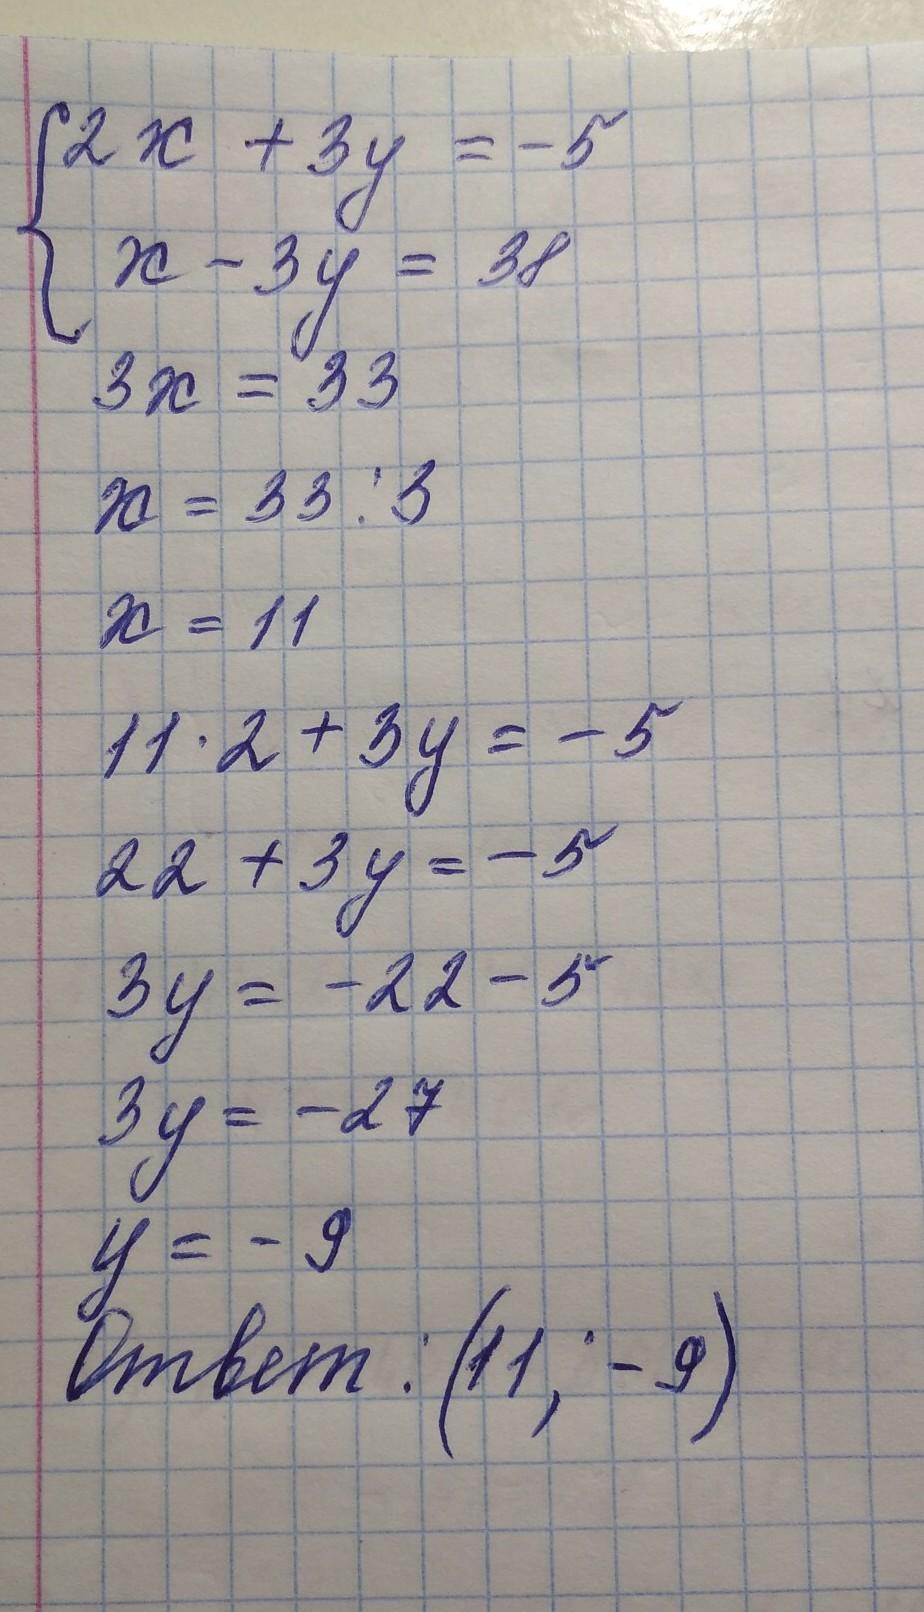 {2x + 3y = -5
x - 3y = 38
3x = 33
x = 33 : 3
x = 11
11 · 2 + 3y = -5
22 + 3y = -5
3y = -22 - 5
3y = -27
y = -9
Ответ: (11; -9)